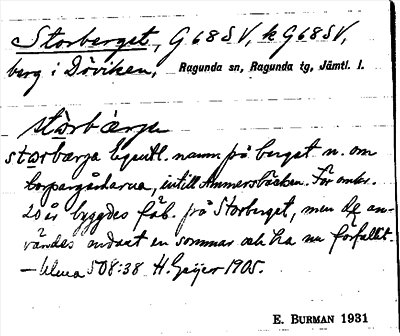 Storberget, G 68 SV, k G 68 SV,
berg i Döviken, Ragunda sn, Ragunda tg, Jämtl. l.
stòrbærje
storbærja Egentl. namn på berget n. om
torpargårdarna, intill Ammersbäcken. För omkr.
20 år byggdes fäb. på Storberget, men de an-
vändes endast en sommar och ha nu förfallit.
– 508:38 H. Geijer 1905.
E. BURMAN 1931